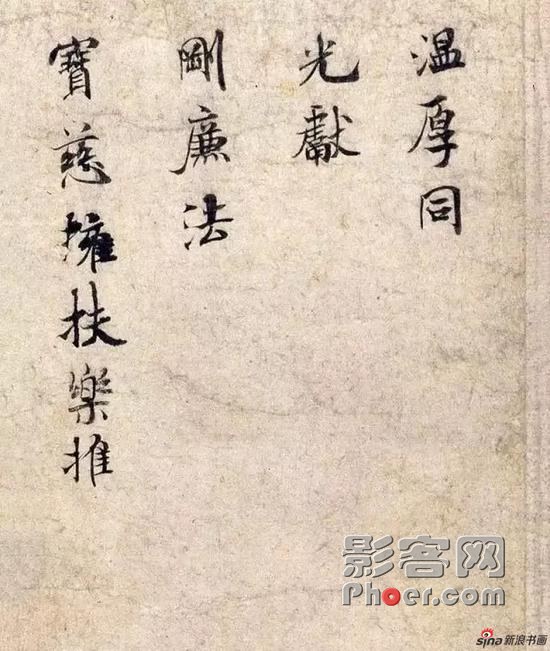 温厚同
光獻
剛廉法
寶慈擁扶樂推
影客网
Phoer.com
sina新浪书画